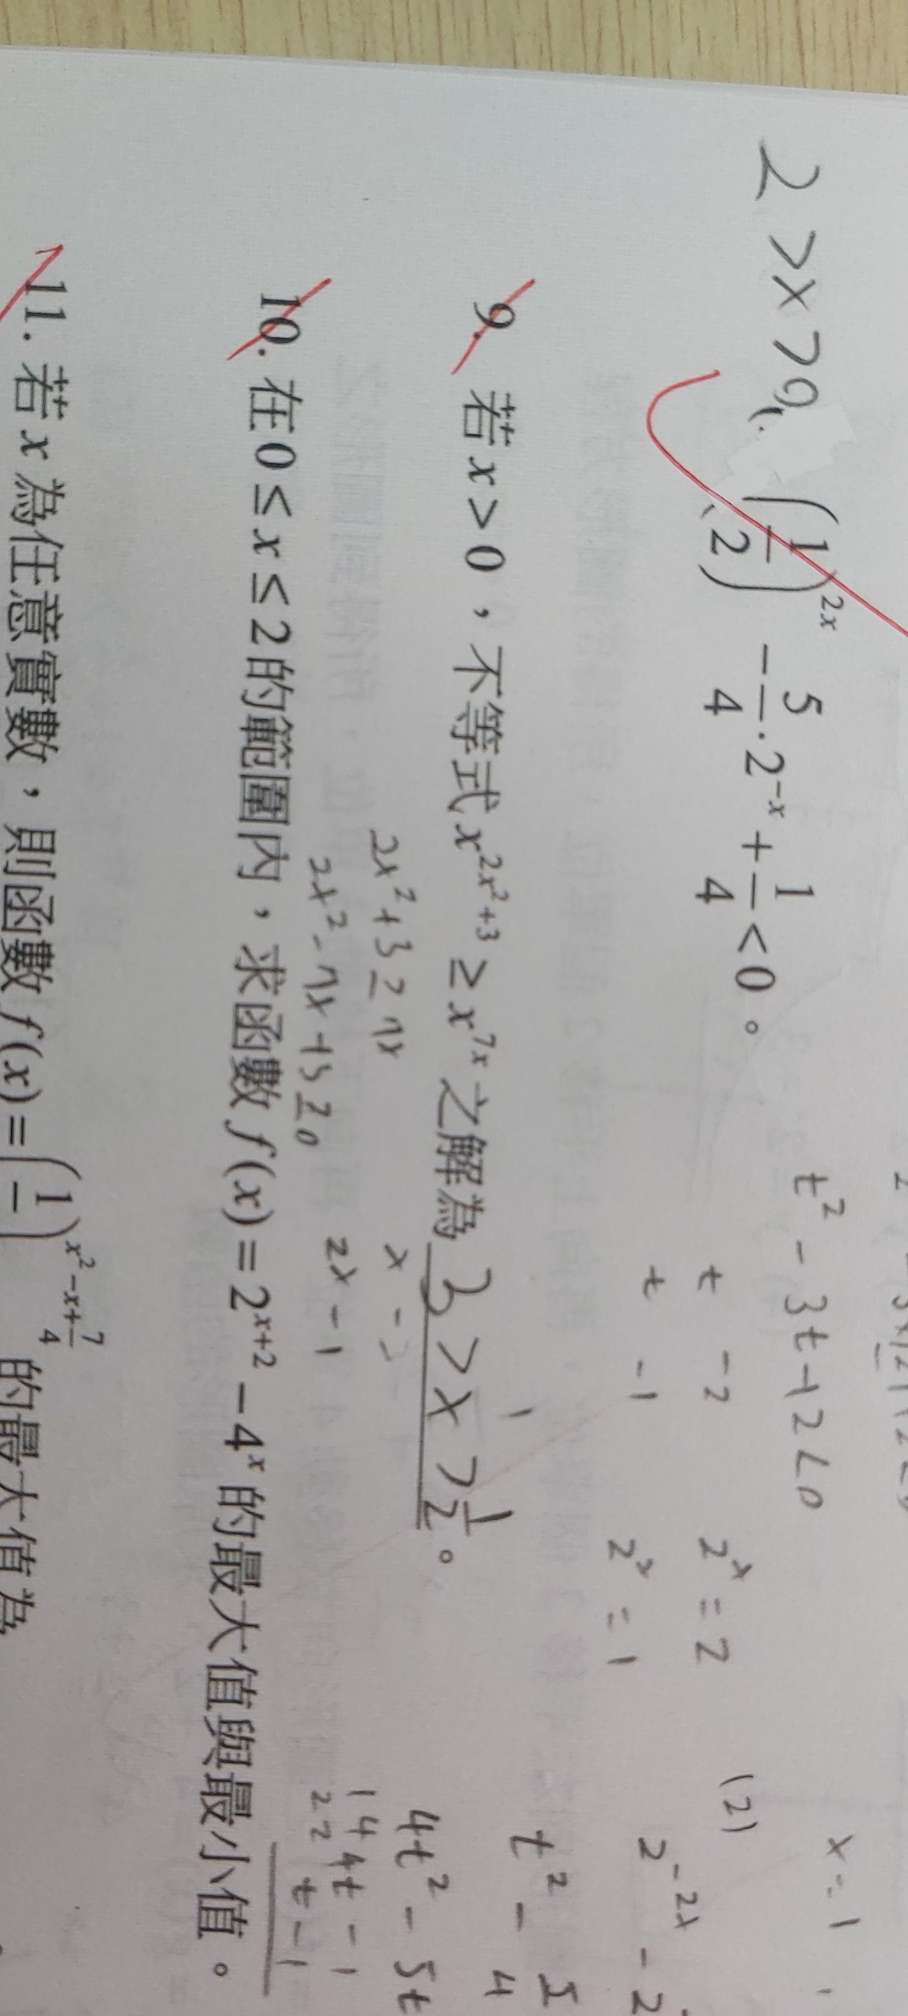 t² - 3t + 2 < 0
t -2 2ˣ = 2
t -1 2ˣ = 1
x = 1
2 > x > 0
(1/2)^{2x} - 5/4 · 2^{-x} + 1/4 < 0。
(2)
2^{-2x} -
t² - 5/4
4t² - 5t
4t -1
t -1
9. 若 x > 0，不等式 x^{2x²+3} ≥ x^{7x} 之解為 3 > x > 1/2。
2x² + 3 ≥ 7x
2x² - 7x + 3 ≥ 0
x -3
2x -1
10. 在 0 ≤ x ≤ 2 的範圍內，求函數 f(x) = 2^{x+2} - 4^x 的最大值與最小值。
11. 若 x 為任意實數，則函數 f(x) = (1/ )^{x²-x+7/4} 的最大值為